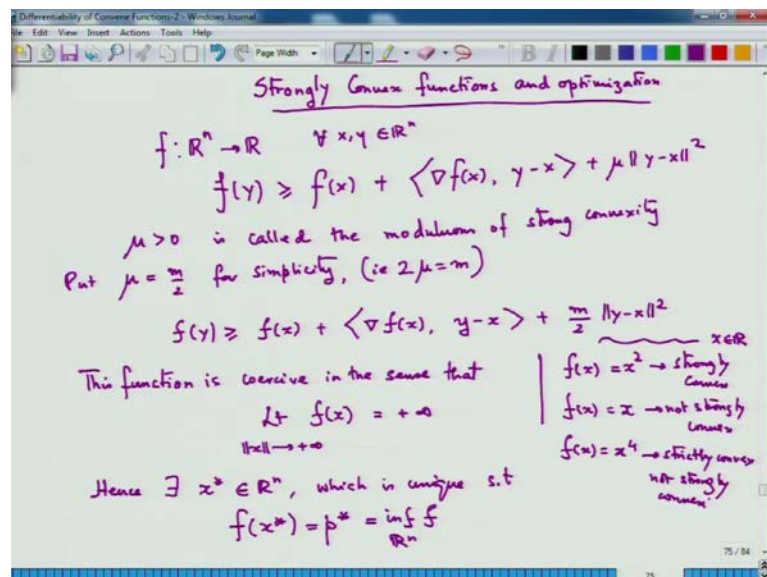 Differentiability of Convene Functions-2 - Windows Journal
File Edit View Insert Actions Tools Help
Page Width
Strongly Convex functions and optimization
f: ℝⁿ → ℝ ∀ x, y ∈ ℝⁿ
f(y) ≥ f(x) + ⟨∇f(x), y-x⟩ + μ‖y-x‖²
μ > 0 is called the moduluom of strong convexity
Put μ = m/2 for simplicity, (ie 2μ = m)
f(y) ≥ f(x) + ⟨∇f(x), y-x⟩ + m/2 ‖y-x‖²
This function is coercive in the sense that
Lt f(x) = +∞
‖x‖ → +∞
Hence ∃ x* ∈ ℝⁿ, which is unique s.t
f(x*) = p* = inf f
ℝⁿ
x ∈ ℝ
f(x) = x² → strongly
convex
f(x) = x → not strongly
convex
f(x) = x⁴ → strictly convex
not strongly
convex
75 / 84
75